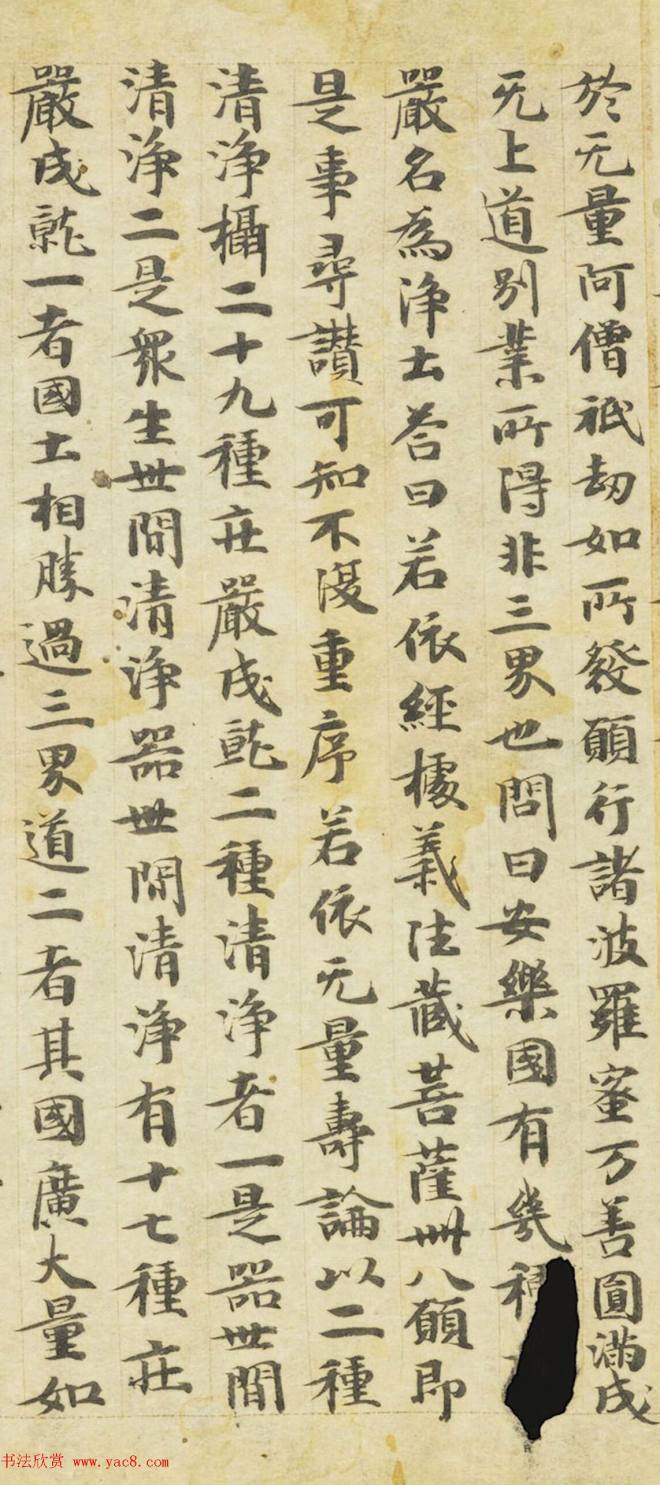 於无量阿僧祇劫如所發願行諸波羅蜜万善圓滿成
无上道別業所得非三界也問曰安樂國有幾種
嚴名為淨土荅曰若依經據義法藏菩薩卌八願即
是事尋讃可知不復重序若依无量壽論以二種
清淨攝二十九種庄嚴成就二種清淨者一是器世間
清淨二是衆生世間清淨器世間清淨有十七種庄
嚴成就一者國土相勝過三界道二者其國廣大量如
书法欣赏 www.yac8.com